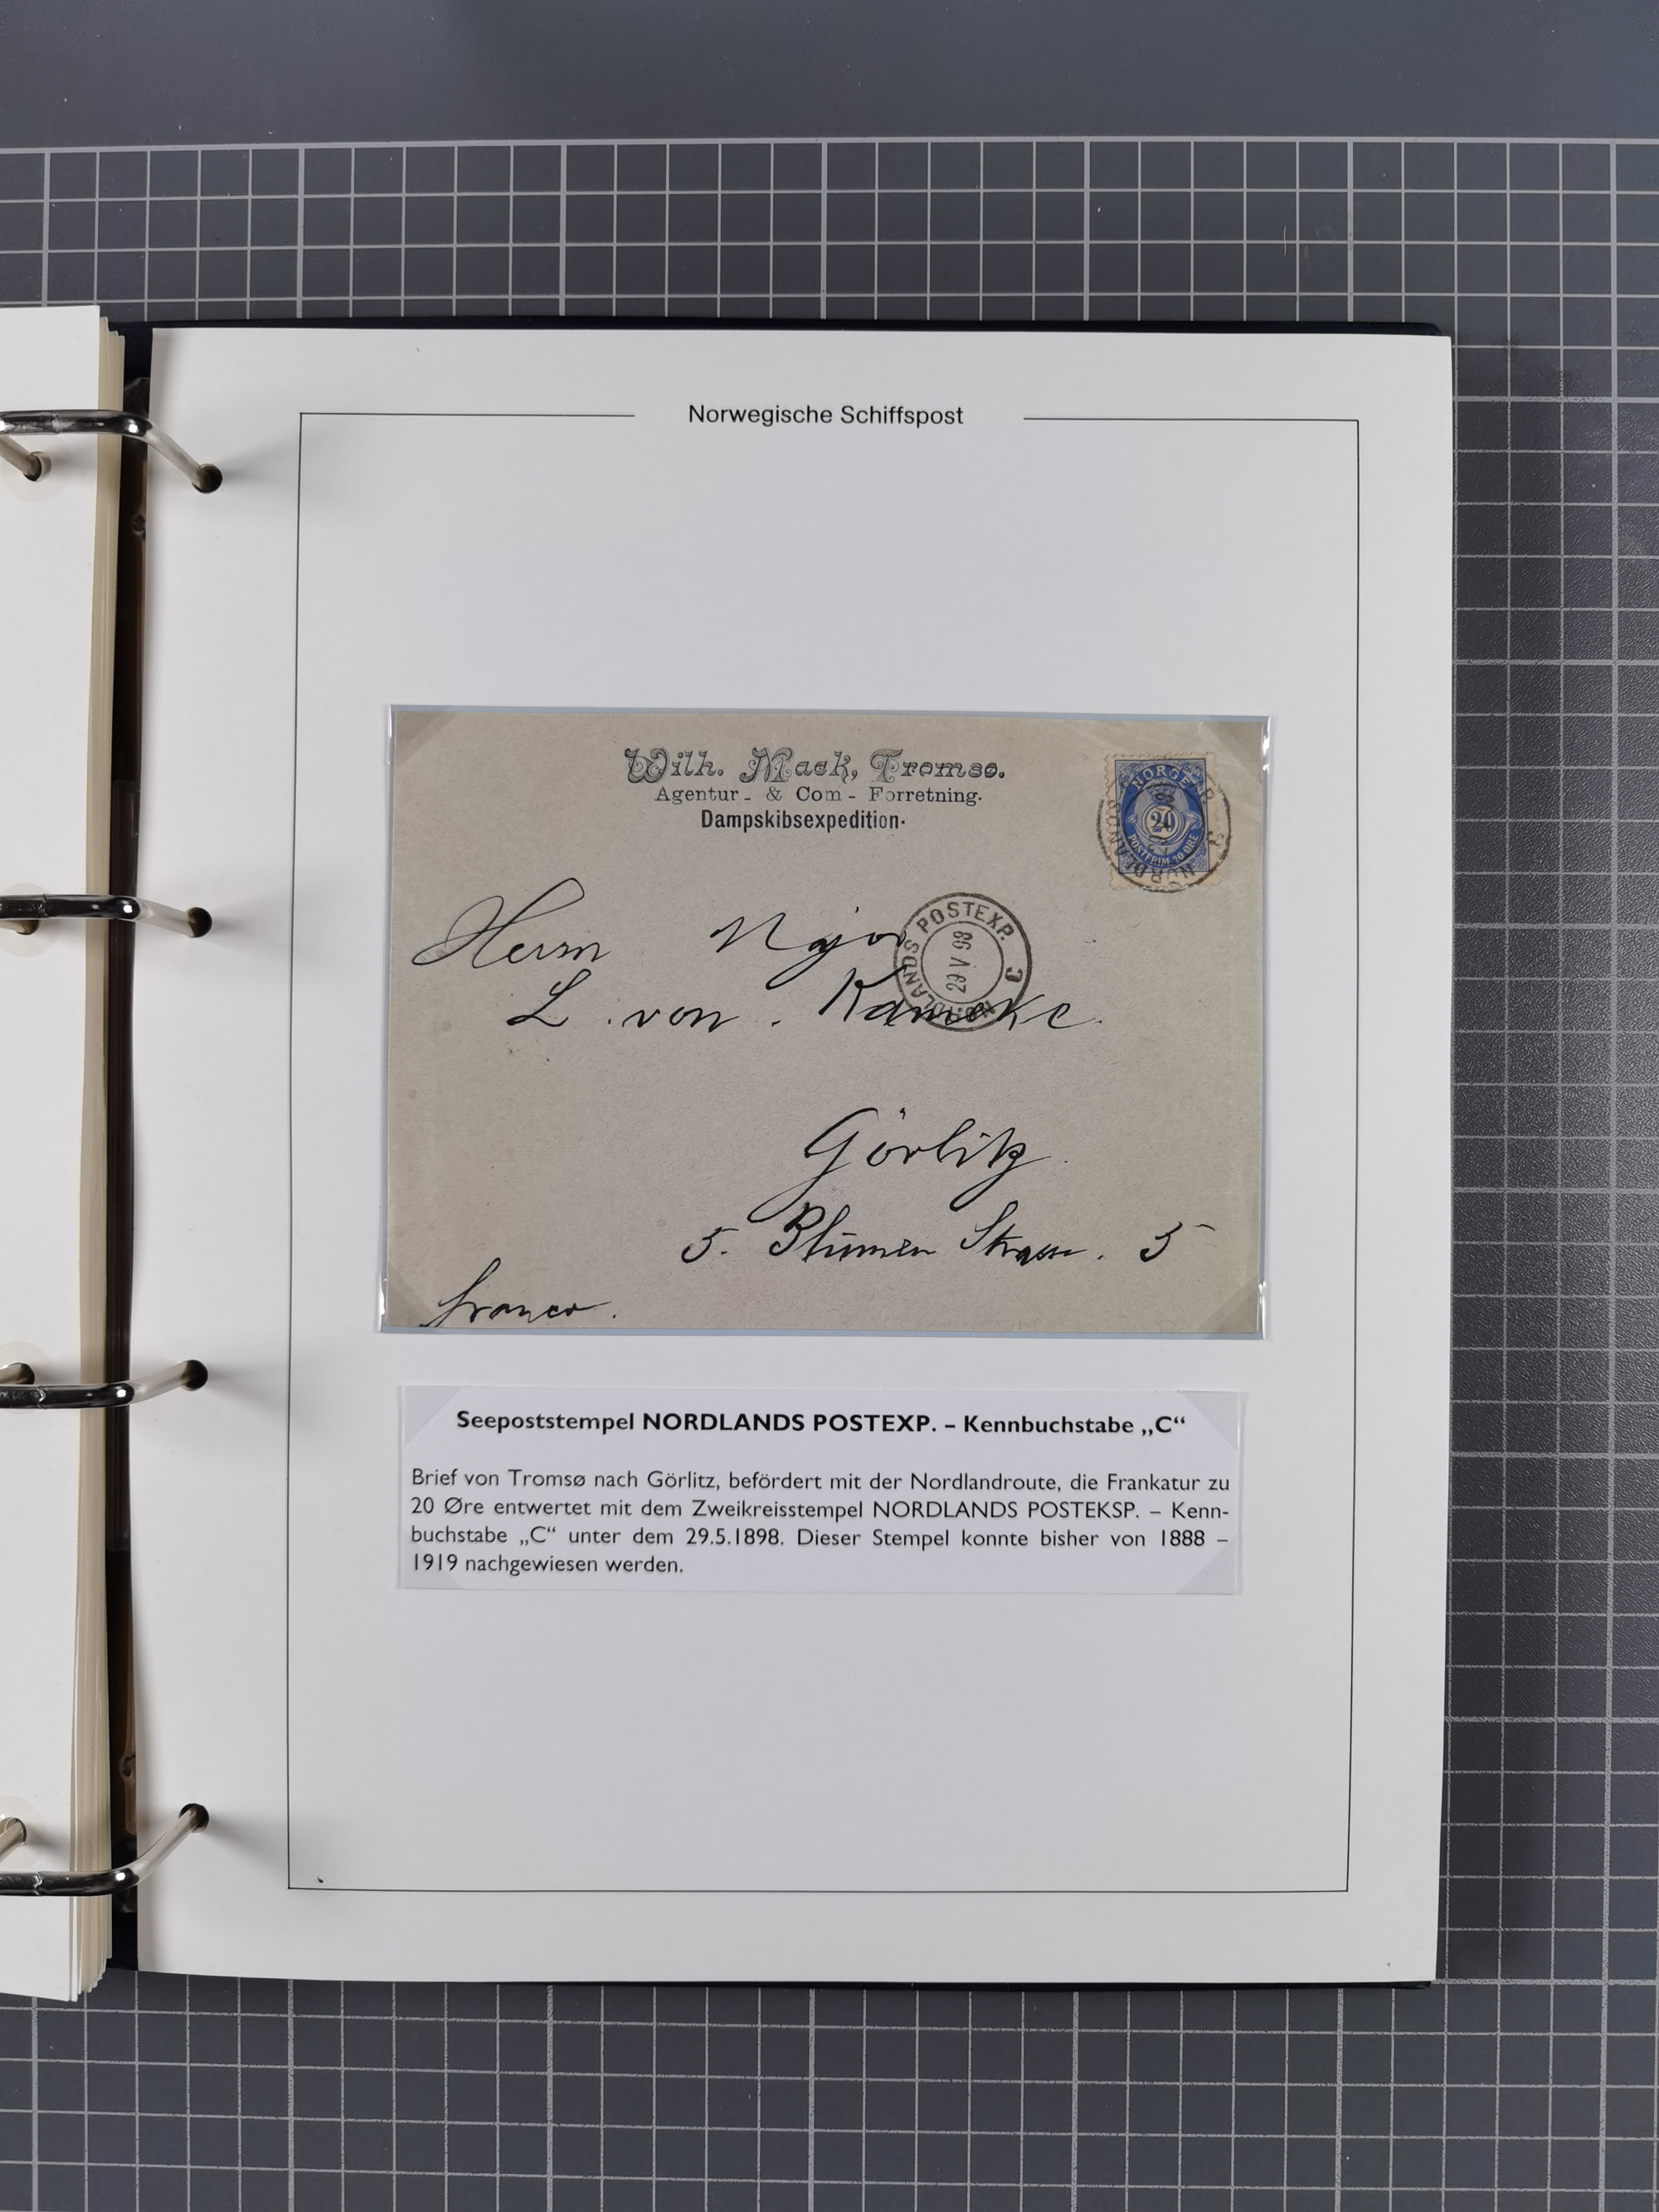 Norwegische Schiffspost
Wilh. Mack, Tromsø.
Agentur - & Com - Forretning.
Dampskibsexpedition.
NORGE
20
POSTFRIM. 20 ØRE
Herrn
L. von Kameke.
NORDLANDS POSTEXP. C
29 V 98
Görlitz
5. Blumen Strasse. 5
franco.
Seepoststempel NORDLANDS POSTEXP. – Kennbuchstabe „C“
Brief von Tromsø nach Görlitz, befördert mit der Nordlandroute, die Frankatur zu
20 Øre entwertet mit dem Zweikreisstempel NORDLANDS POSTEKSP. – Kenn-
buchstabe „C“ unter dem 29.5.1898. Dieser Stempel konnte bisher von 1888 –
1919 nachgewiesen werden.